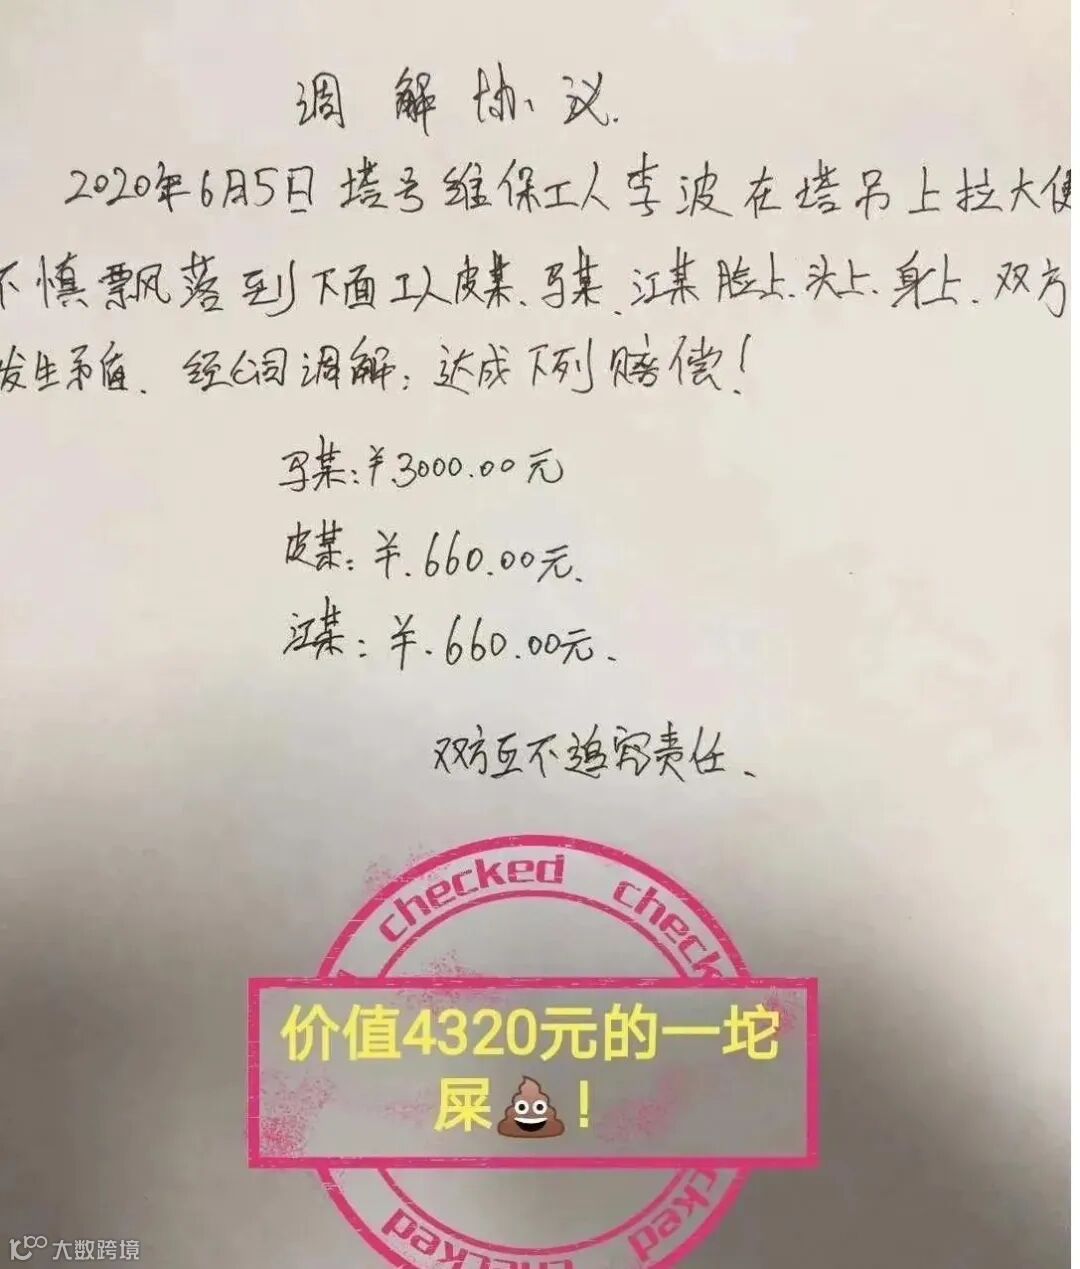 调解协议.
2020年6月5日塔号维保工人李波在塔吊上拉大便
不慎飘落到下面工人皮某、马某、江某脸上、头上、身上、双方
发生矛盾、经公司调解:达成下列赔偿!
马某:¥.3000.00元
皮某:¥.660.00元.
江某:¥.660.00元.
双方互不追究责任、
checked checked
价值4320元的一坨
屎💩!
checked checked
大数跨境